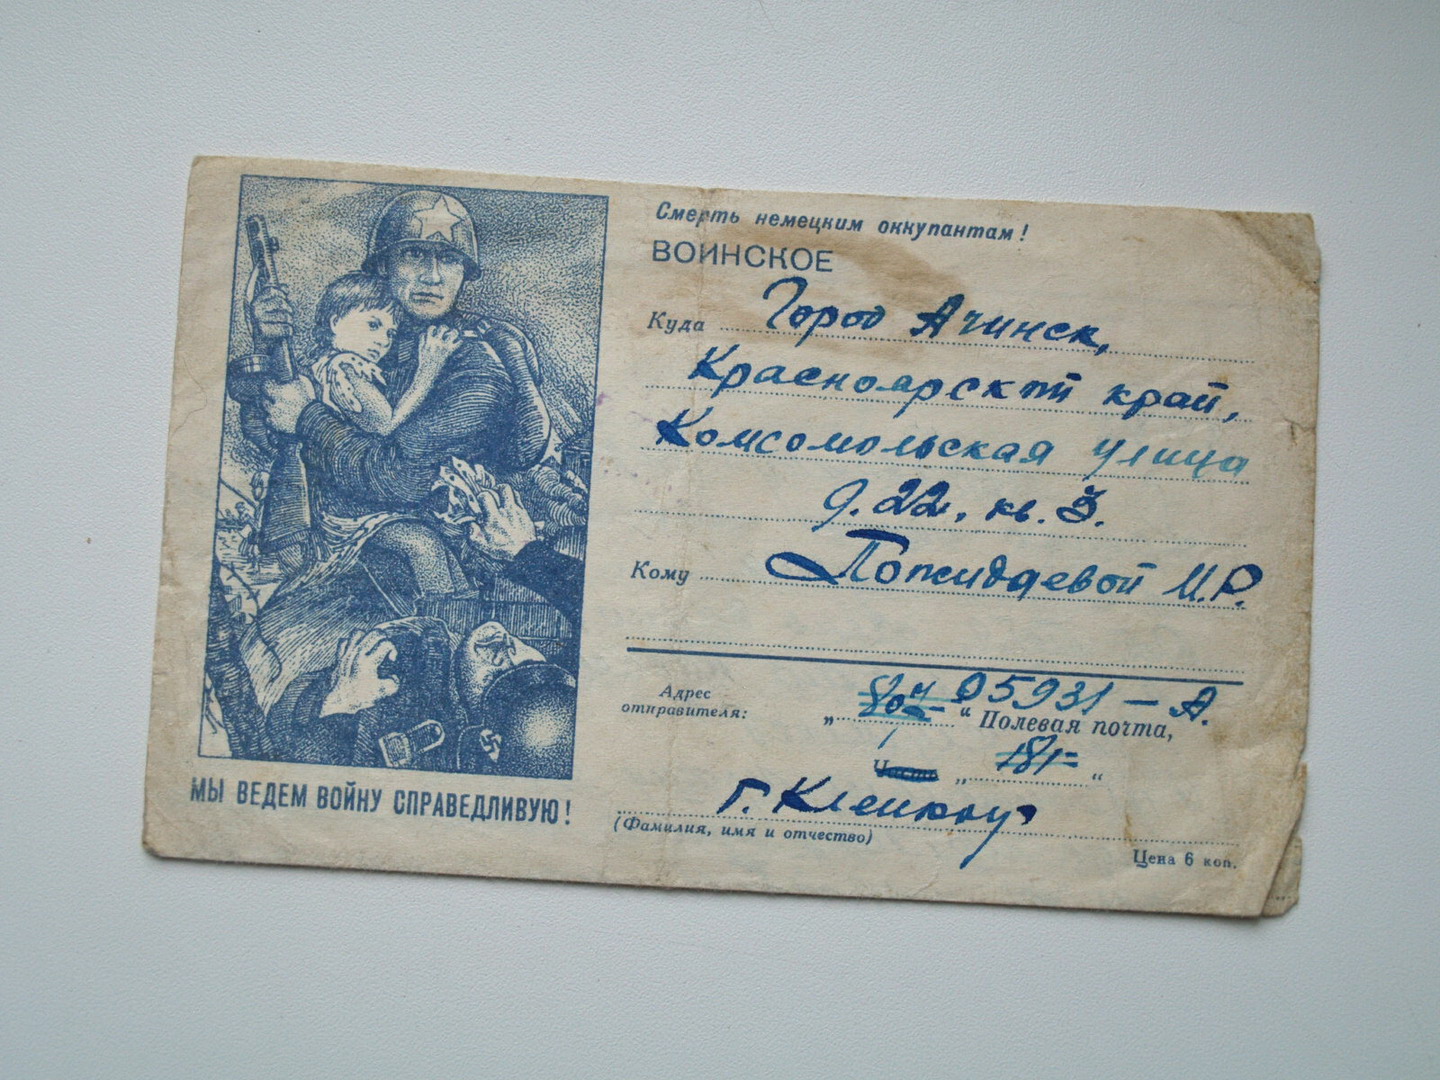 Смерть немецким оккупантам!
ВОИНСКОЕ
Куда Город Ачинск,
Красноярский край,
Комсомольская улица
д. 22, кв. 3.
Кому Пожидаевой М.Р.
Адрес отправителя:
05931-А.
„ “ Полевая почта,
Часть „ 181 “
(Фамилия, имя и отчество)
Цена 6 коп.
МЫ ВЕДЕМ ВОЙНУ СПРАВЕДЛИВУЮ!